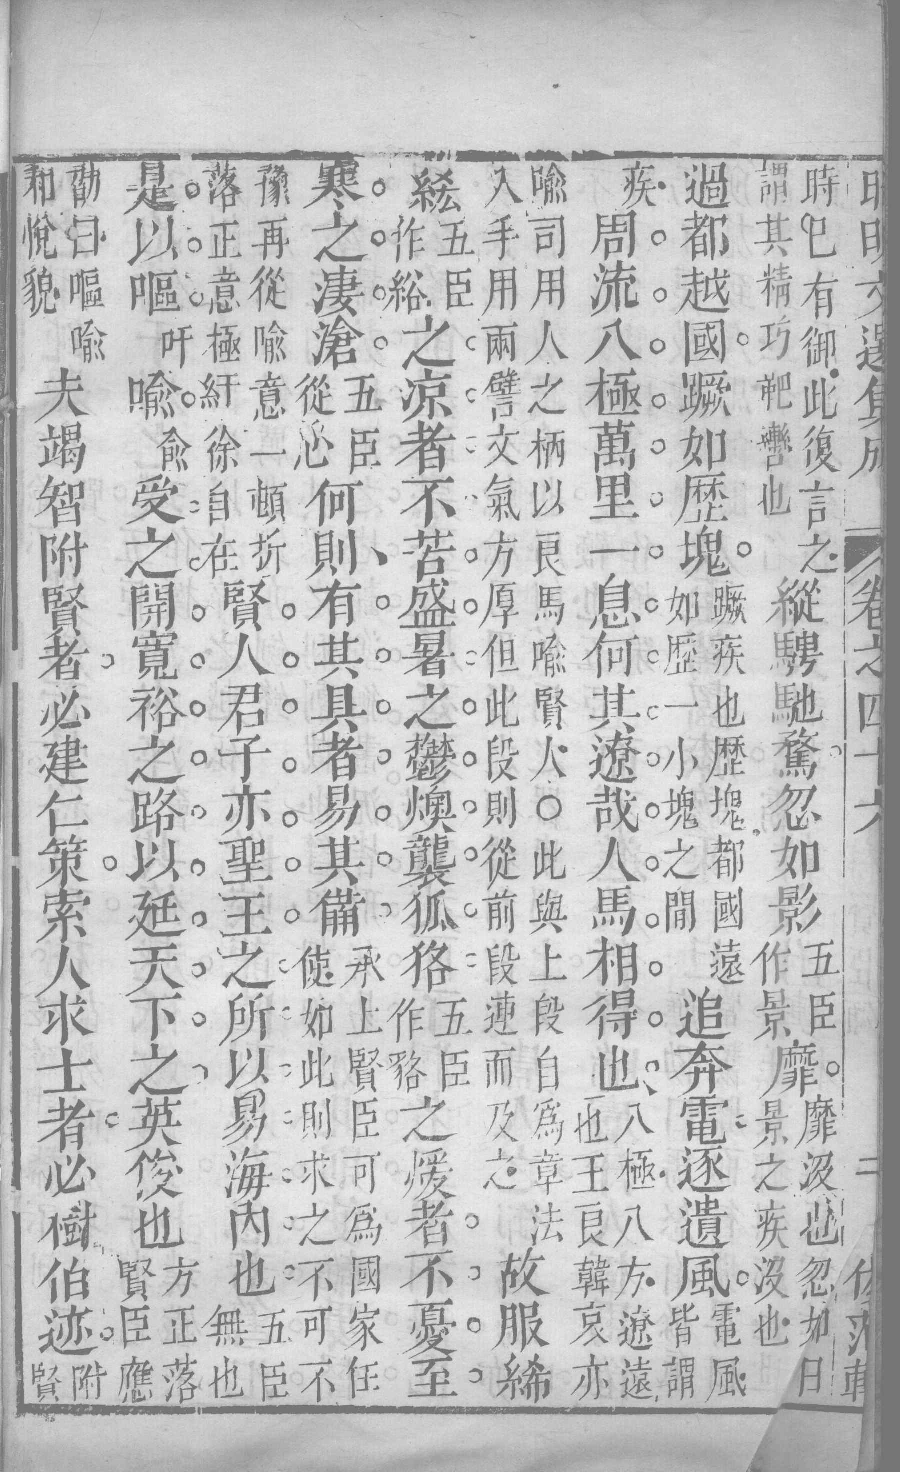 昭明文選集成 卷之四十六 二
時已有御此復言之謂其精巧靶轡也縱騁馳騖忽如影五臣作景靡靡沒也忽如日景之疾沒也
過都越國蹶如歷塊蹶疾也歷塊都國遠如歷一小塊之間追奔電逐遺風電風皆謂
疾周流八極萬里一息何其遼哉人馬相得也八極八方遼遠也王良韓哀亦
喻司用人之柄以良馬喻賢人○此與上段自爲章法入手用兩譬文氣方厚但此段則從前段連而及之故服絺
綌五臣作綌之凉者不苦盛暑之鬱燠襲狐狢五臣作貉之煖者不憂至
寒之淒滄五臣從心何則有其具者易其備承上賢臣可爲國家任使如此則求之不可不
豫再從喻意一頓折落正意極紆徐自在賢人君子亦聖王之所以易海內也五臣無也
是以嘔吁喻俞受之開寬裕之路以延天下之英俊也方正落賢臣應
劭曰嘔喻和悅貌夫竭智附賢者必建仁策索人求士者必樹伯迹附賢